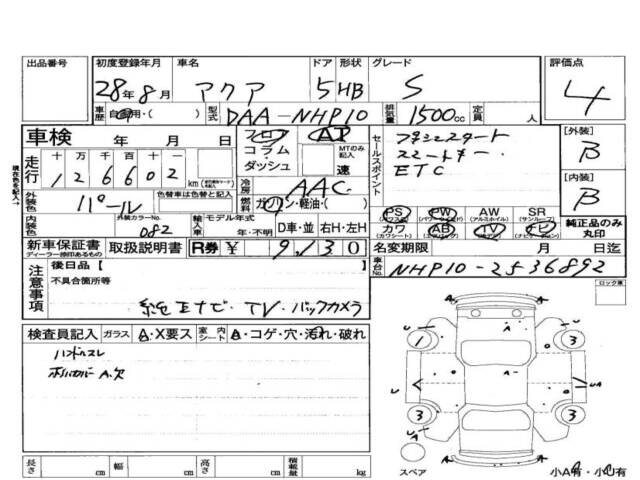 出品番号 初度登録年月 車名 ドア 形状 グレード 評価点
28年 8月 アクア 5 HB S 4
車歴 自家用・( ) 型式 DAA-NHP10 排気量 1500cc 定員 人
車検 年 月 日 フロア AT セールスポイント プッシュスタート [外装]
コラム MTのみ記入 スマートキー B
走行 十 万 千 百 十 一 ダッシュ 速 ETC [内装]
1 2 6 6 0 2 km B
冷房 AAC
外装色 パール 色替車は色替と記入 燃料 ガソリン・軽油・( ) PS PW AW SR 純正品のみ丸印
(パワステ) (パワーウインド) (アルミホイル) (サンルーフ)
内装色 外装カラーNo. 082 輸入車 モデル年式 年・不明 D車・並 右H・左H カワ AB TV ナビ
(カワシート) (エアバッグ) (テレビ) (ナビゲーション)
新車保証書 取扱説明書 R券 ¥ 9,130 名変期限 月 日迄
ディーラー捺印あるもの
車台No. NHP10-2536892
注意事項 後日品[ ]
不具合箇所等
純正ナビ・TV・バックカメラ
ロック車
検査員記入 ガラス A・X要ス 室内シート A・コゲ・穴・汚れ・破れ
ハンドルスレ
A.欠
U A
1 3
A A
U UA
3 3
UA
A
長さ cm 幅 cm 高さ cm 積載量 kg
スペア 小A有・小U有
現在色を記入→